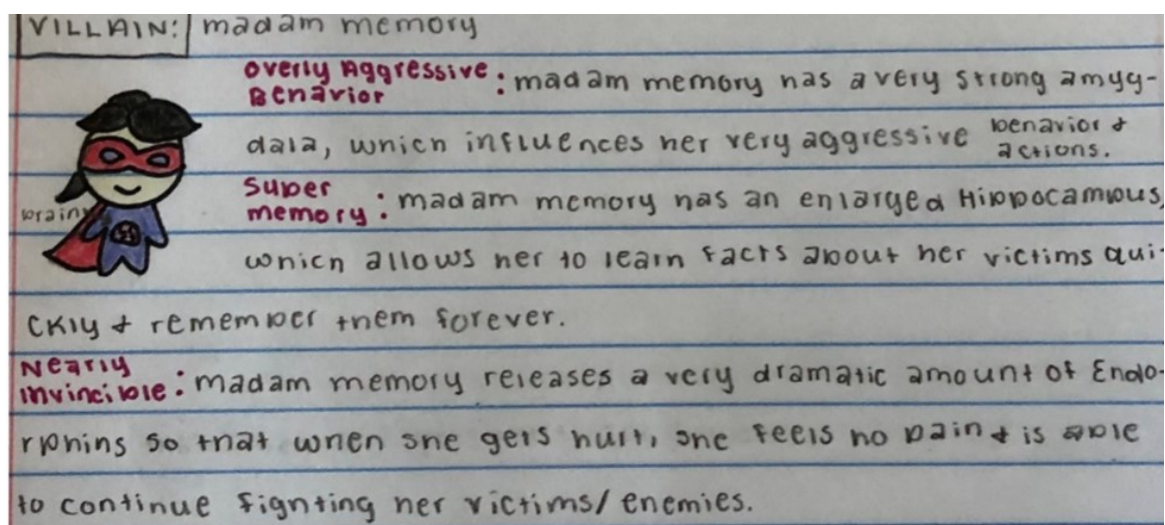 VILLAIN: madam memory
Overly Aggressive Behavior: madam memory has a very strong amyg-
dala, which influences her very aggressive behavior + actions.
Super memory: madam memory has an enlarged Hippocampus,
which allows her to learn facts about her victims qui-
ckly + remember them forever.
brainy
Nearly invincible: madam memory releases a very dramatic amount of Endo-
rphins so that when she gets hurt, she feels no pain + is able
to continue fighting her victims/enemies.